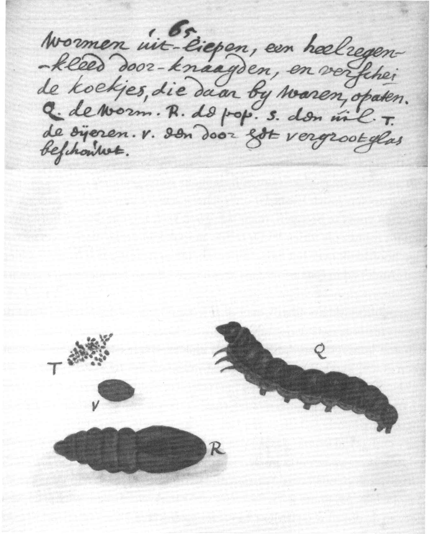 65
wormen úit-liepen, een heelregen-
-kleed door-knaagden, en verschei
de koekjes, die daar by waren, opaten.
Q de worm. R. de pop. S. den úil. T.
de eijeren. V. een door het vergrootglas
beschoúwt.
T
Q
V
R